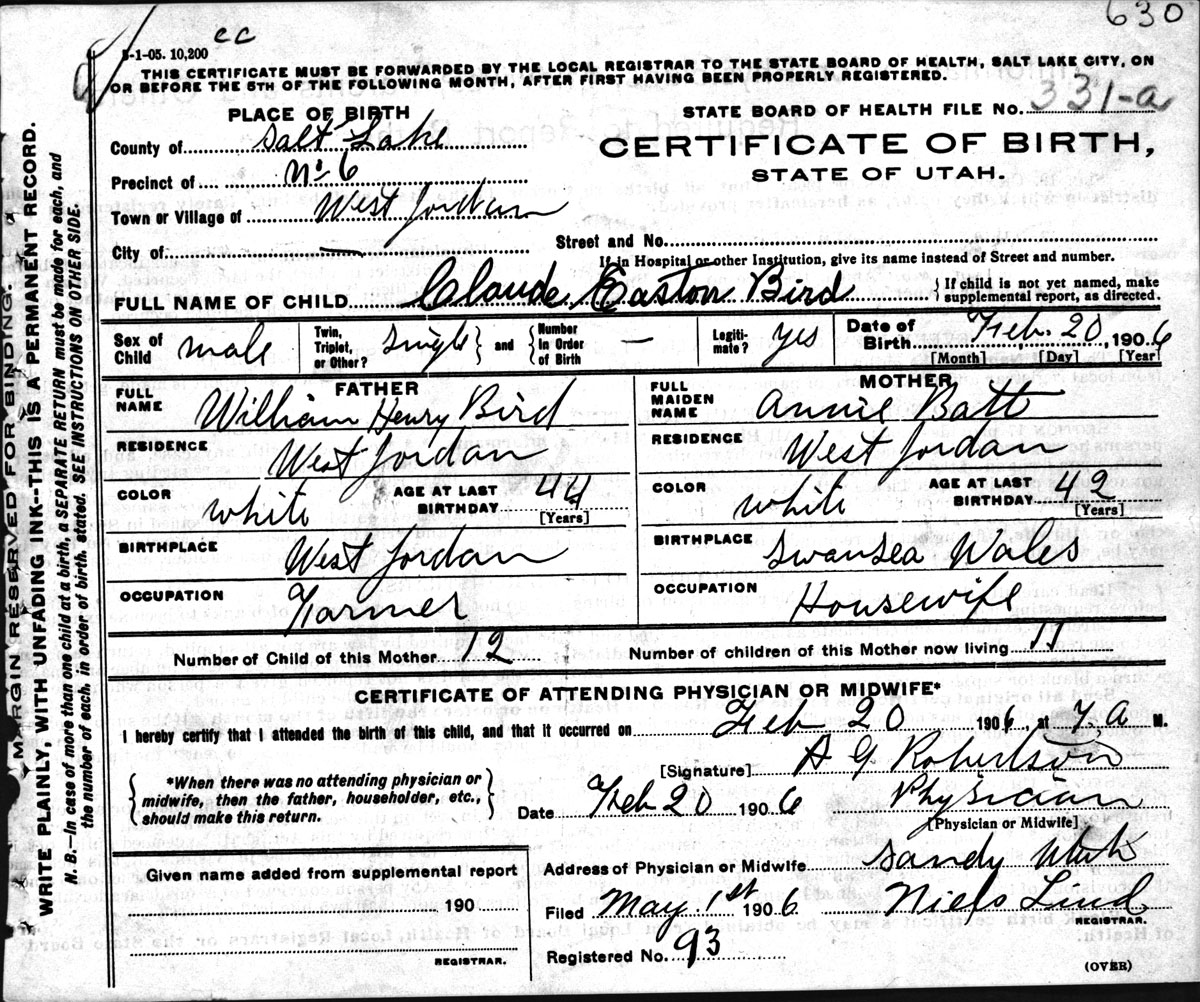 630
cc
8-1-05. 10,200
THIS CERTIFICATE MUST BE FORWARDED BY THE LOCAL REGISTRAR TO THE STATE BOARD OF HEALTH, SALT LAKE CITY, ON
OR BEFORE THE 5TH OF THE FOLLOWING MONTH, AFTER FIRST HAVING BEEN PROPERLY REGISTERED.
PLACE OF BIRTH
STATE BOARD OF HEALTH FILE No. 331-a
County of Salt Lake
CERTIFICATE OF BIRTH,
STATE OF UTAH.
Precinct of No 6
Town or Village of West Jordan
City of —
Street and No.
If in Hospital or other Institution, give its name instead of Street and number.
FULL NAME OF CHILD Claude Easton Bird { If child is not yet named, make supplemental report, as directed.
Sex of Child male Twin, Triplet, or Other? Single } and { Number in Order of Birth — Legitimate? yes Date of Birth Feb. 20, 1906
[Month] [Day] [Year]
FATHER
MOTHER
FULL NAME William Henry Bird
FULL MAIDEN NAME Annie Batt
RESIDENCE West Jordan
RESIDENCE West Jordan
COLOR white AGE AT LAST BIRTHDAY 44 [Years]
COLOR white AGE AT LAST BIRTHDAY 42 [Years]
BIRTHPLACE West Jordan
BIRTHPLACE Swansea Wales
OCCUPATION Farmer
OCCUPATION Housewife
Number of Child of this Mother 12 Number of children of this Mother now living 11
CERTIFICATE OF ATTENDING PHYSICIAN OR MIDWIFE*
I hereby certify that I attended the birth of this child, and that it occurred on Feb 20 1906, at 7 a M.
{ *When there was no attending physician or midwife, then the father, householder, etc., should make this return. }
[Signature] A G Robertson
Date Feb 20 1906 Physician
[Physician or Midwife]
Given name added from supplemental report
190
REGISTRAR.
Address of Physician or Midwife Sandy Utah
Filed May 1st 1906 Niels Lind
REGISTRAR.
Registered No. 93
(OVER)
MARGIN RESERVED FOR BINDING.
WRITE PLAINLY, WITH UNFADING INK--THIS IS A PERMANENT RECORD.
N. B.—In case of more than one child at a birth, a SEPARATE RETURN must be made for each, and
the number of each, in order of birth, stated. SEE INSTRUCTIONS ON OTHER SIDE.